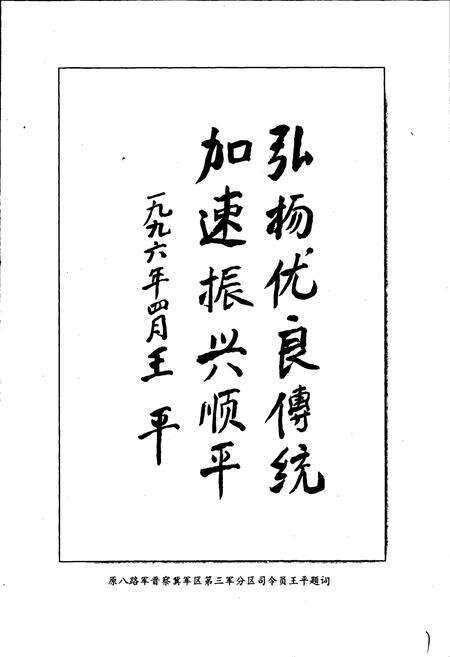 弘杨优良傳统
加速振兴顺平
一九九六年四月王平
原八路军晋察冀军区第三军分区司令员王平题词